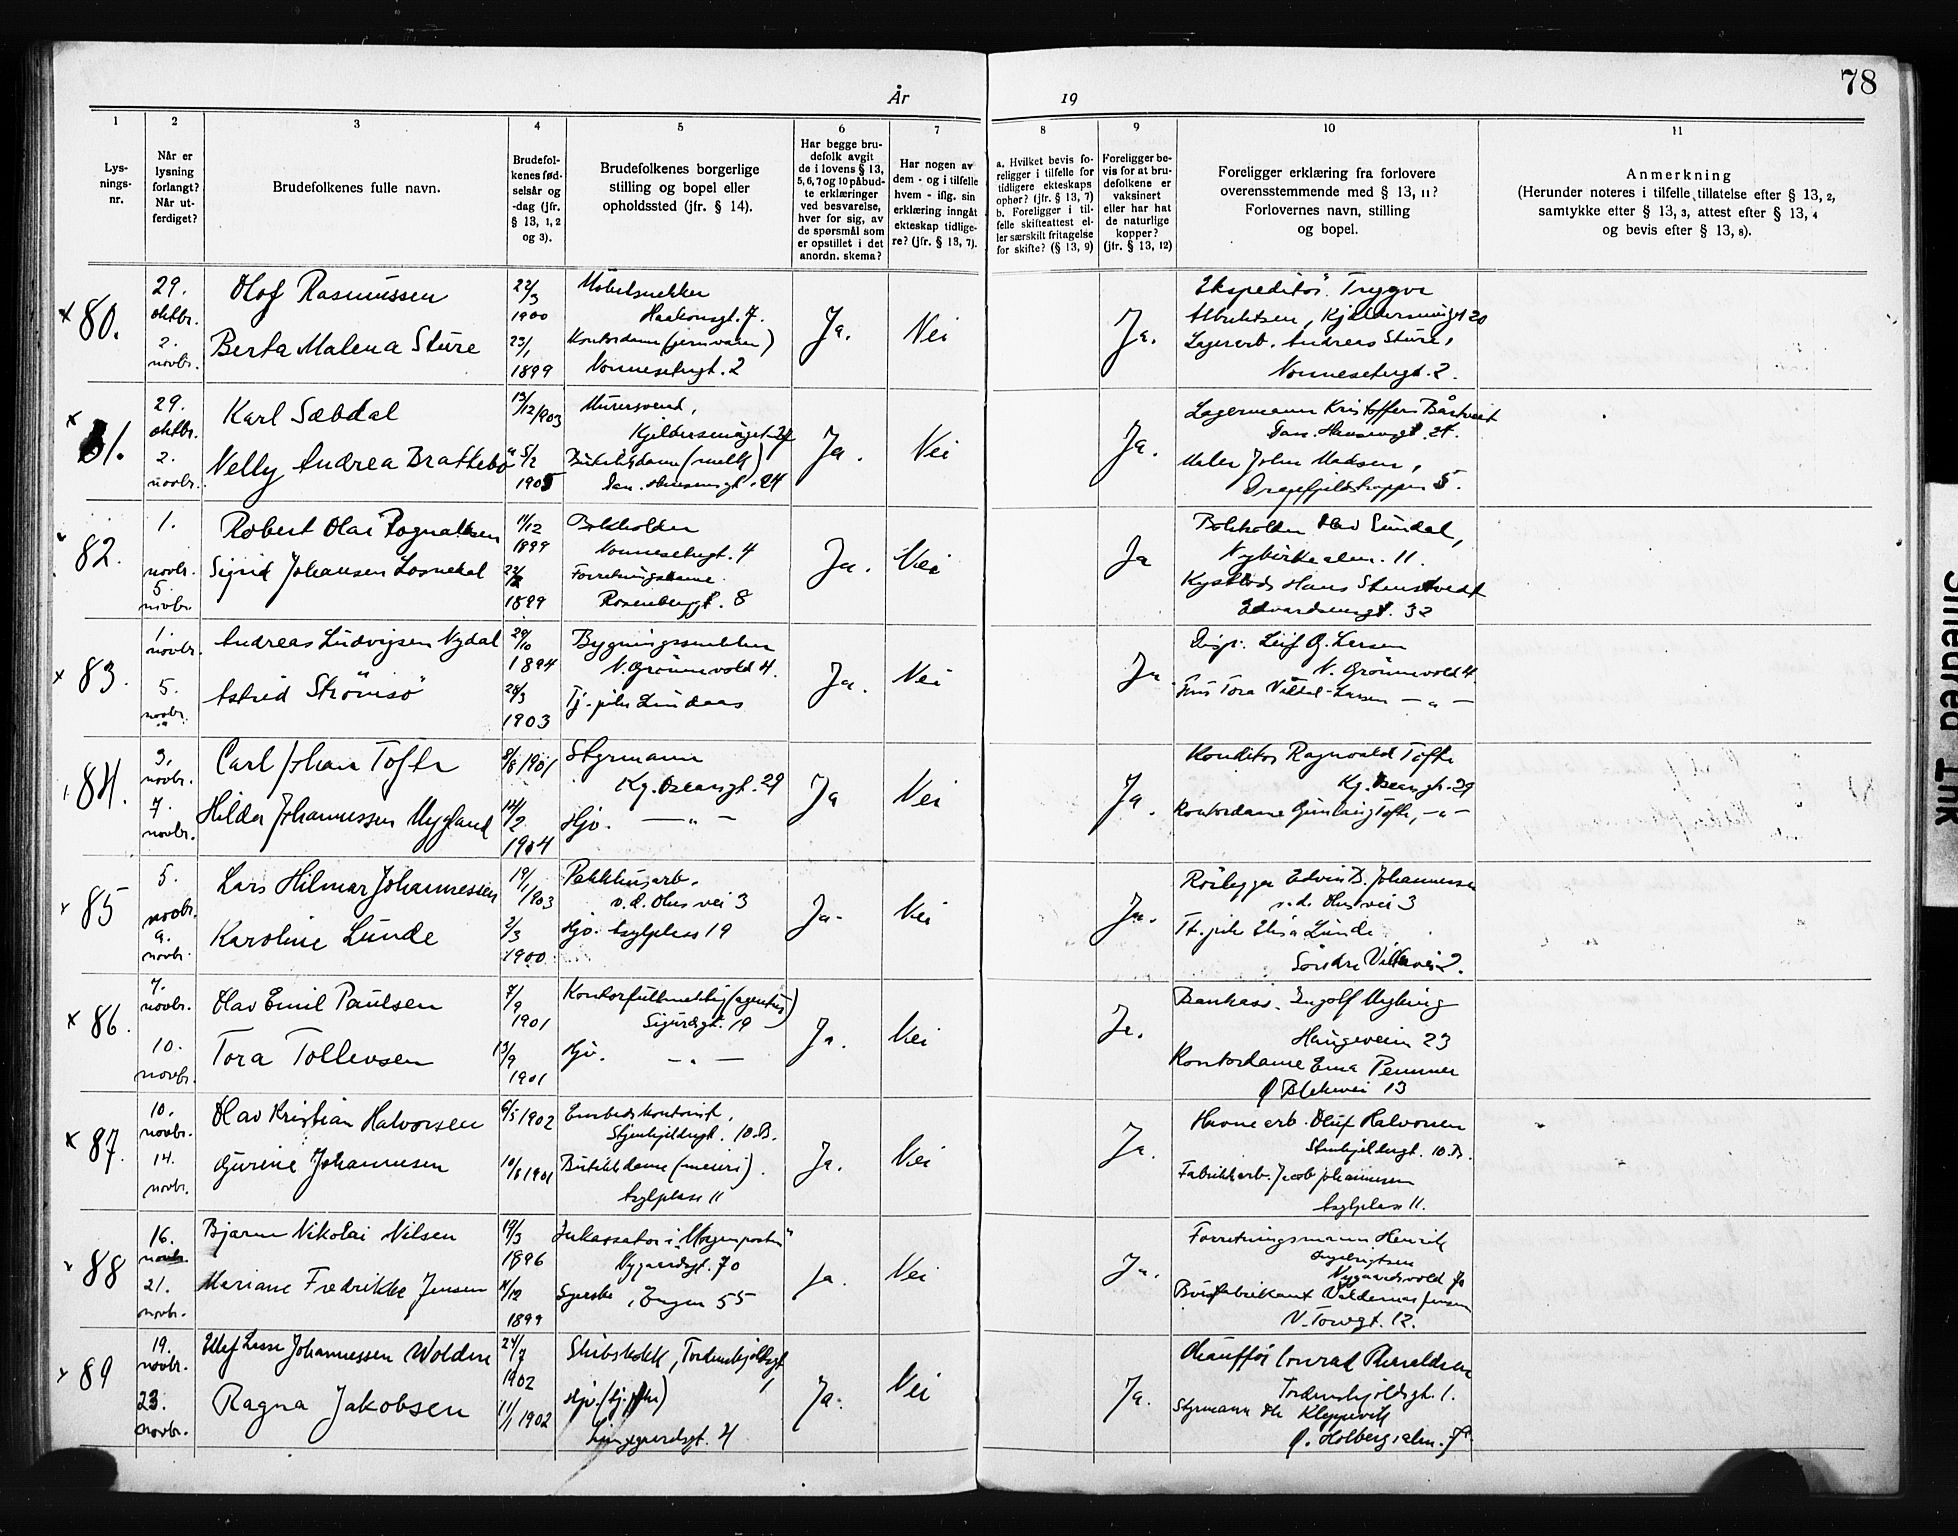 78
År 19
1 2 3 4 5 6 7 8 9 10 11
Lys-
nings-
nr.
Når er
lysning
forlangt?
Når ut-
ferdiget?
Brudefolkenes fulle navn.
Brudefol-
kenes fød-
selsår og
-dag (jfr.
§ 13, 1, 2
og 3).
Brudefolkenes borgerlige
stilling og bopel eller
opholdssted (jfr. § 14).
Har begge bru-
defolk avgit
de i lovens § 13,
5, 6, 7 og 10 påbud-
te erklæringer
ved besvarelse,
hver for sig, av
de spørsmål som
er opstillet i det
anordn. skema?
Har nogen av
dem - og i tilfelle
hvem - iflg. sin
erklæring inngåt
ekteskap tidlige-
re? (jfr. § 13, 7).
a. Hvilket bevis fo-
religger i tilfelle for
tidligere ekteskaps
ophør? (jfr. § 13, 7)
b. Foreligger i til-
felle skifteattest el-
ler særskilt fritagelse
for skifte? (§ 13, 9)
Foreligger be-
vis for at bru-
defolkene er
vaksinert
eller har hat
de naturlige
kopper?
(jfr. § 13, 12)
Foreligger erklæring fra forlovere
overensstemmende med § 13, 11?
Forlovernes navn, stilling
og bopel.
Anmerkning
(Herunder noteres i tilfelle tillatelse efter § 13, 2,
samtykke efter § 13, 3, attest efter § 13, 4
og bevis efter § 13, 8).
x 80.
29.
oktbr.
2.
novbr.
Olof Rasmussen
Berta Malena Sture
22/3
1900
23/1
1899
Møbelsnekker
Haakonsgt. 7.
Kontordame (jernvarer)
Nonnesetergt. 2
Ja.
Nei
Ja.
Ekspeditør Trygve
Albriktsen, Kjeldersmuget 20
Lagerarb. Andreas Sture,
Nonnesetergt. 2.
x 81.
29.
oktbr.
2.
novbr.
Karl Sæbdal
Nelly Andrea Brattebø
13/12 1903
5/2
1905
Murersvend,
Kjeldersmuget 24
Butikkdame (melk)
Dan. Hansensgt. 24
Ja.
Nei
Ja.
Lagermann Kristoffer Båstveit
Dan. Hansensgt. 24.
Maler John Madsen,
Dragefjeldstrappen 5.
82.
1.
novbr.
5.
novbr.
Robert Olai Rognaldsen
Sigrid Johansen Losnedal
11/12
1899
1899
Bokholder
Nonnesetergt. 4
Forretningsdame
Rosenbergt. 8
Ja.
Nei
Ja
Bokholder Olav Sundal,
Nybirkealm. 11.
Hans Stenstvedt
Edvardsensgt. 32
x 83.
1.
novbr.
5.
novbr.
Andreas Ludvigsen Nydal
Astrid Strømsø
29/10
1894
28/3
1903
Bygningssnekker
N. Grønnevold 4.
Tj. pike Lindaas
Ja.
Nei
Ja.
Disp. Leif G. Larsen
N. Grønnevold 4
Fru Tora Larsen — " —
84.
3.
novbr.
7.
novbr.
Carl Johan Tofte
Hilda Johannessen Mygland
8/8 1901
12/2
1904
Styrmann
Kg. Oscarsgt. 29
Hjv. — " —
Ja
Nei
Ja.
Konditor Ragnvald Tofte
Kg. Oscarsgt. 29
Kontordame Gunlaug Tofte, — " —
85
5.
novbr.
9.
novbr.
Lars Hilmar Johannessen
Karoline Lunde
19/1
1903
2/3
1900
Pakkhusarb.
v. d. Ohes vei 3
Hjv. Asylplass 19
Ja.
Nei
Ja.
Rørlegger Edvin B. Johannessen
v. d. Ohes vei 3
Tj. pike Elisa Lunde
Søndre Villavei 2.
x 86.
7.
novbr.
10.
novbr.
Olav Emil Paulsen
Tora Tollevsen
7/9
1901
13/9
1901
Kontorfullmektig (agentur)
Sigurdsgt. 19
Hjv. — " —
Ja.
Nei
Ja.
Bankass. Ingolf Myking
Haugeveien 23
Kontordame Erna Penmer
Ø Blekevei 13
x 87.
10.
novbr.
14.
novbr.
Olav Kristian Halvorsen
Gurine Johannesen
6/5 1902
10/8 1901
Embedskontorist,
Stenkjeldergt. 10.B.
Butikkdame (meieri).
Asylplass 11
Ja.
Nei
Ja.
Havnearb. Oluf Halvorsen
Stenkjeldergt. 10.B.
Fabrikkarb. Jacob Johannesen
Asylplass 11.
88
16.
novbr.
21.
novbr.
Bjarne Nikolai Nilsen
Mariane Fredrikke Jensen
19/3
1896
11/12
1899
Inkassator i „Morgenposten"
Nygaardsgt. 70
Syerske, Engen 55
Ja.
Nei
Ja.
Forretningsmann Henrik
Ingebrigtsen
Nygaardsvold
Valdemar Jensen
V. Torvgt. 12.
89
19.
novbr.
23.
novbr.
Ellef Lasse Johannessen Wolden
Ragna Jakobsen
24/7
1902
11/1 1902
Skibskokk, Tordenskjoldsgt.
1
Hjv. (tj. pike)
Lungegaardsgt. 4
Ja.
Nei
Ja.
Chauffør Conrad
Tordenskjoldsgt. 1.
Styrmann Ole Kleppevik
Ø. Holbergsalm. 7a
Smeared Ink